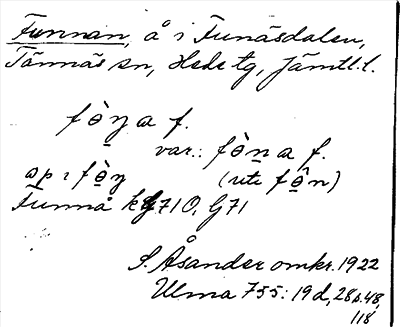 Funnan, å i Funäsdalen,
Tännäs sn, Hede tg, Jämtl. l.
fòŋa f.
var.: fòna f.
ap i fòŋ (uti fôn)
Funnå kfg 71 O, G 71
S. Åsander omkr. 1922
Ulma 755: 19 d, 28 s. 48,
118